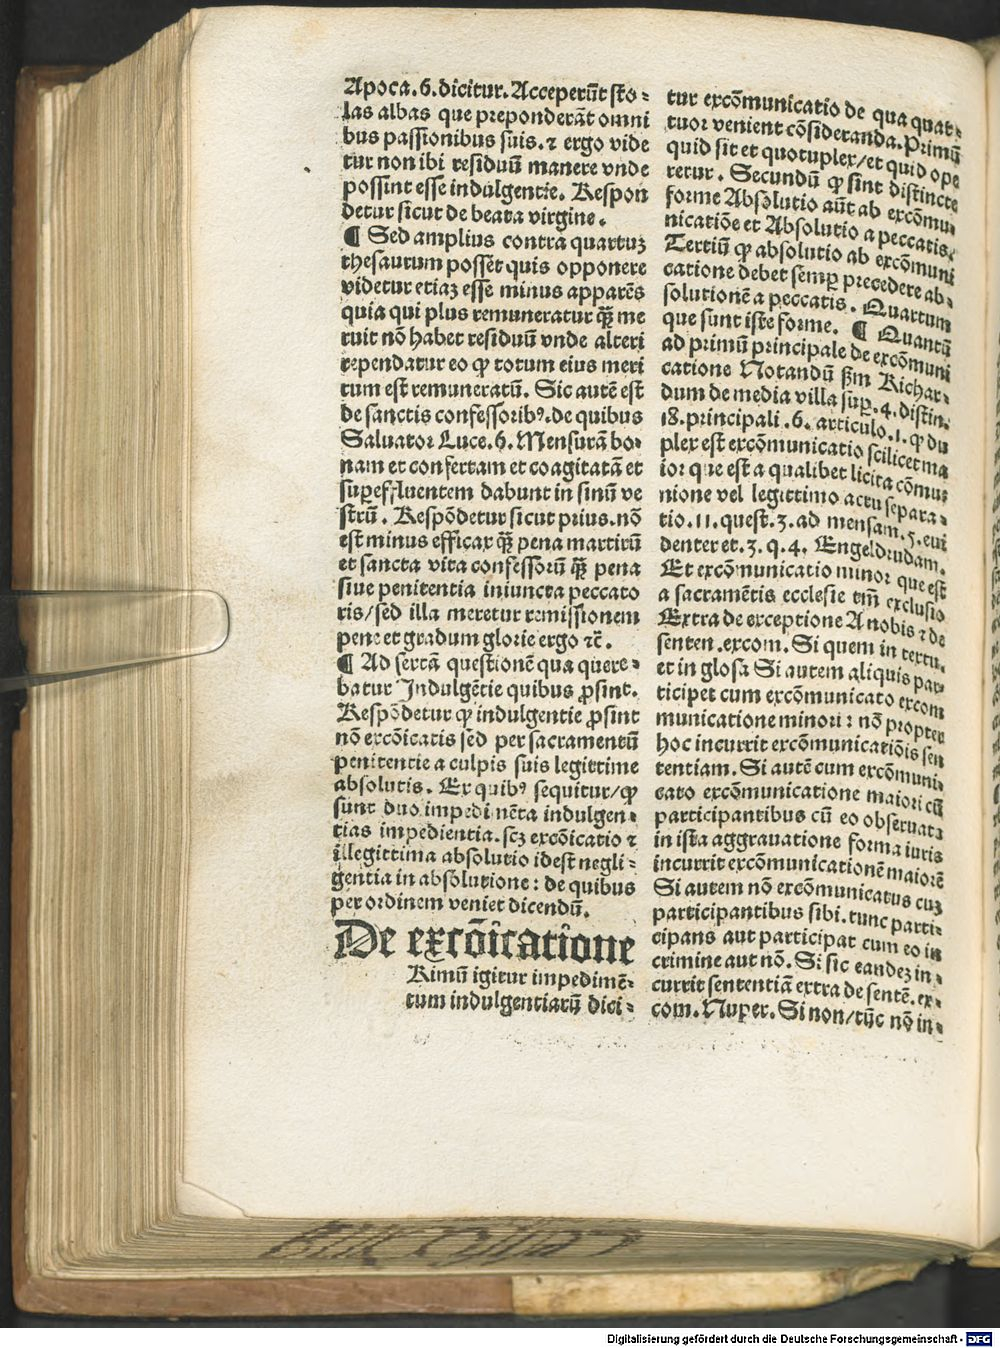 Apoca.6.dicitur.Acceperūt sto⸗
las albas que preponderāt omni
bus passionibus suis.⁊ ergo vide
tur non ibi residuū manere vnde
possint esse indulgentie. Respon
detur sicut de beata virgine.
¶ Sed amplius contra quartuꝫ
thesaurum posset quis opponere
videtur etiaꝫ esse minus apparēs
quia qui plus remuneratur qꝫ̄ me
ruit nō habet residuū vnde alteri
rependatur eo ꝙ totum eius meri
tum est remuneratū. Sic autē est
de sanctis confessoribꝰ.de quibus
Saluator Luce.6.Mensurā bo⸗
nam et confertam et coagitatā et
suꝑeffluentem dabunt in sinū ve
strū. Respōdetur sicut prius.nō
est minus efficax qꝫ̄ pena martirū
et sancta vita confessorū qꝫ̄ pena
siue penitentia iniuncta peccato
ris/sed illa meretur remissionem
pene et gradum glorie ergo ⁊c̄.
¶ Ad sextā questionē qua quere⸗
batur Indulgētie quibus ꝓsint.
Respōdetur ꝙ indulgentie ꝓsint
nō excōicatis sed per sacramentū
penitentie a culpis suis legittime
absolutis. Ex quibꝰ sequitur/ꝙ
sunt duo impedimēta indulgen⸗
tias impedientia.scꝫ excōicatio ⁊
illegittima absolutio idest negli⸗
gentia in absolutione: de quibus
per ordinem veniet dicendū.
De excōicatione
Rimū igitur impedimē⸗
tum indulgentiarū dici⸗
tur excōmunicatio de qua quat⸗
tuor venient cōsideranda.Primū
quid sit et quotuplex/et quid ope
retur. Secundū ꝙ sint distincte
forme Absolutio aūt ab excōmu⸗
nicatiōe et Absolutio a peccatis.
Tertiū ꝙ absolutio ab excōmuni
catione debet semꝑ precedere ab⸗
solutionē a peccatis. Quartum
que sunt iste forme. ¶ Quantū
ad primū principale de excōmuni
catione Notandū ẜm Richar⸗
dum de media villa suꝑ.4.distin.
18.principali.6.articulo.1.ꝙ du
plex est excōmunicatio scilicet ma
ior que est a qualibet licita cōmu⸗
nione vel legittimo actu separa⸗
tio.11.quest.3.ad mensam.5.eui
denter et.3.q.4. Engeldrudam.
Et excōmunicatio minor que est
a sacramētis ecclesie tm̄ exclusio
Extra de exceptione A nobis ⁊ de
senten.excom. Si quem in textu.
et in glosa Si autem aliquis par⸗
ticipet cum excōmunicato excom
municatione minori: nō propter
hoc incurrit excōmunicatiōis sen
tentiam. Si autē cum excōmuni⸗
cato excōmunicatione maiori cū
participantibus cū eo obseruata
in ista aggrauatione forma iuris
incurrit excōmunicationē maiorē
Si autem nō excōmunicatus cuꝫ
participantibus sibi.tunc parti⸗
cipans aut participat cum eo in
crimine aut nō. Si sic eandeꝫ in⸗
currit sententiā extra de sentē.ex⸗
com. Nuper. Si non/tūc nō in⸗
Digitalisierung gefördert durch die Deutsche Forschungsgemeinschaft - DFG